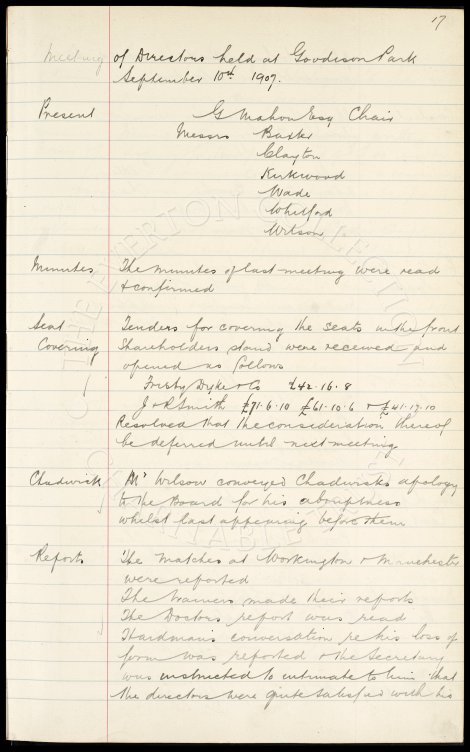 17
Meeting of Directors held at Goodison Park
September 10th 1907.
Present G Mahon Esq Chair
Messrs Baxter
Clayton
Kirkwood
Wade
Whitford
Wilson
Minutes The minutes of last meeting were read
& confirmed
Seat Tenders for covering the seats in the front
Covering Shareholders stand were received and
opened as follows
Frisby Dyke & Co £42.16.8
J & R Smith £71.6.10 £61.10.6 & £41.17.10
Resolved that the consideration thereof
be deferred until next meeting
Chadwick Mr Wilson conveyed Chadwicks apology
to the Board for his abruptness
whilst last appearing before them
Reports The matches at Workington & Manchester
were reported
The trainers made their reports
The Doctors report was read
Hardman's conversation re his loss of
form was reported & the Secretary
was instructed to intimate to him that
the directors were quite satisfied with his
THE EVERTON COLLECTION
CHARITABLE